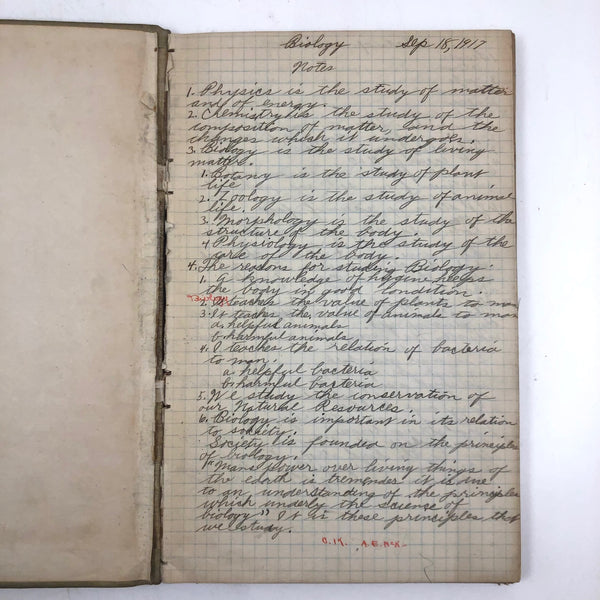 Biology Sep 18, 1917
Notes
1. Physics is the study of matter
and of energy.
2. Chemistry is the study of the
composition of matter, and the
changes which it undergoes.
3. Biology is the study of living
matter.
1. Botany is the study of plant
life
2. Zoology is the study of animal
life.
3. Morphology is the study of the
structure of the body.
4 Physiology is the study of the
care of the body.
4. The reasons for studying Biology.
1. A knowledge of helps
the body in good condition.
2. It teaches the value of plants to man
3. It teaches the value of animals to man
a. helpful animals
b. harmful animals
4. I teaches the relation of bacteria
to man.
a. helpful bacteria
b. harmful bacteria
5. We study the conservation of
our Natural Resources.
6. Biology is important in its relation
to society.
Society is founded on the principles
of biology.
"Mans power over living things of
the earth is it is due
to an understanding of the principles
which underly the science of
biology" It is these principles that
we study.
O.K. A.E.